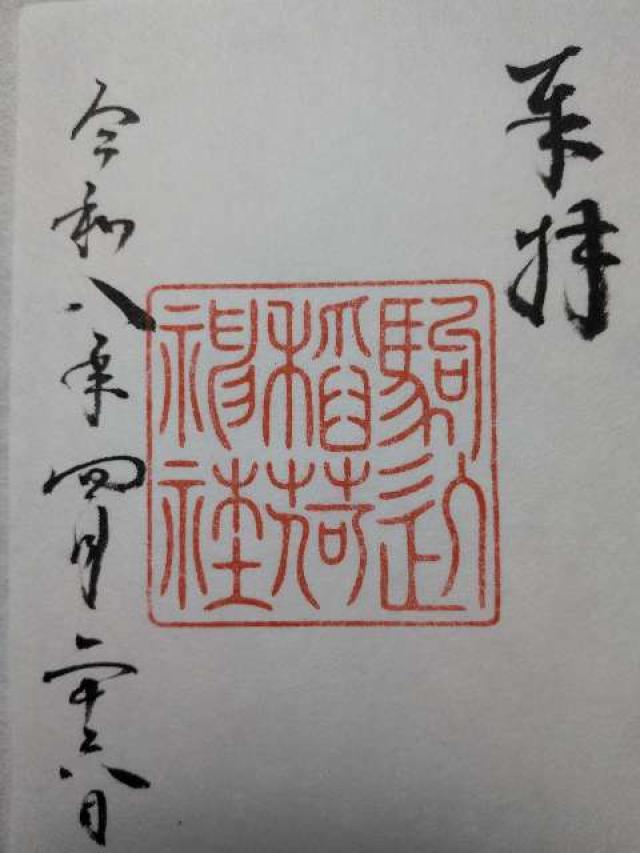 奉拝
駒込
稲荷
神社
令和八年四月二十六日